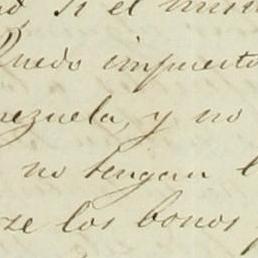 si el mism
Quedo impuesto
nezuela, y no
no tengan l
se los bonos